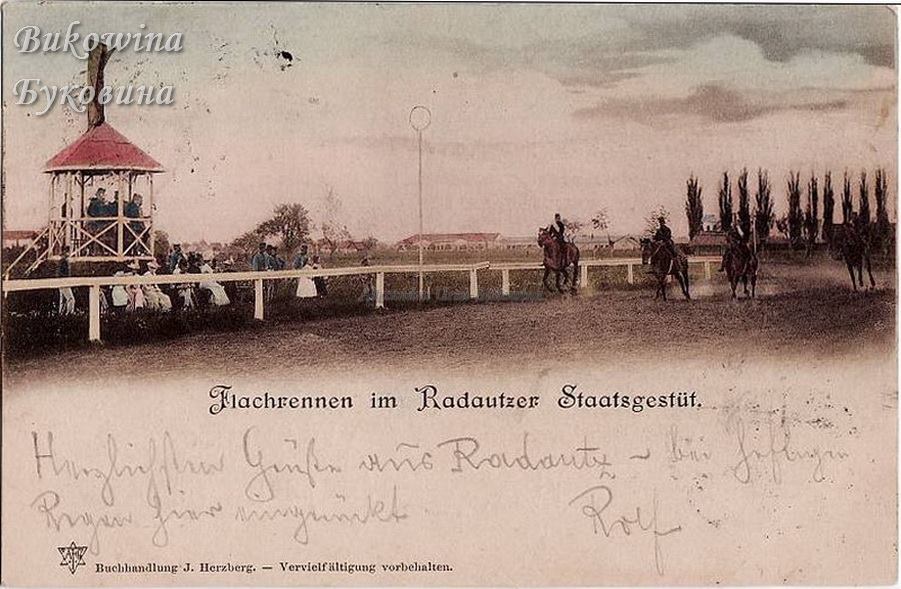 Bukowina
Буковина
Flachrennen im Radautzer Staatsgestüt.
Herzlichsten Grüße aus Radautz – bei heftigem
Regen hier eingerückt
Rolf
Buchhandlung J. Herzberg. — Vervielfältigung vorbehalten.